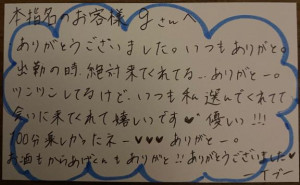 本指名のお客様 gさんへ
ありがとうございました。いつもありがと。
出勤の時、絶対来てくれてる…ありがとー。
ツンツンしてるけど、いつも私選んでくれてて
会いに来てくれて嬉しいです♥ 優しい!!!
100分楽しかったネー♥♥♥ありがとー。
お酒もからあげくんもありがと!!ありがとうございました♥